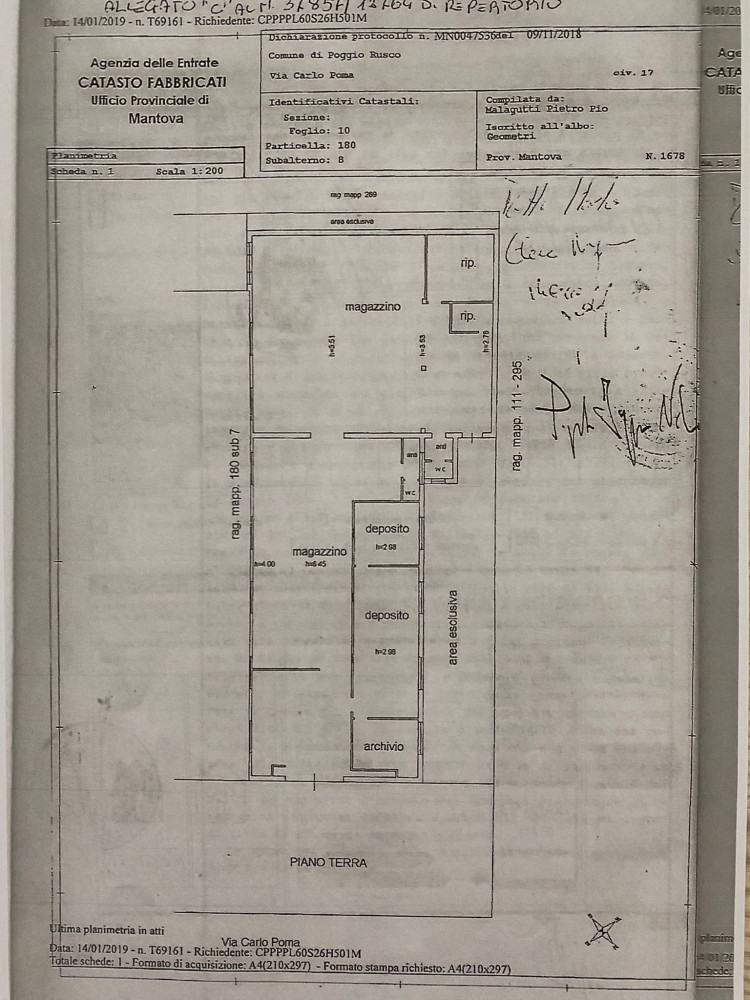 ALLEGATO "C" AL N. DI REPERTORIO
Data: 14/01/2019 - n. T69161 - Richiedente: CPPPPL60S26H501M
Agenzia delle Entrate
CATASTO FABBRICATI
Ufficio Provinciale di
Mantova
Dichiarazione protocollo n. MN0047536del 09/11/2018
Comune di Poggio Rusco
Via Carlo Poma civ. 17
Identificativi Catastali:
Sezione:
Foglio: 10
Particella: 180
Subalterno: 8
Compilata da:
Malagutti Pietro Pio
Iscritto all'albo:
Geometri
Prov. Mantova N. 1678
Planimetria
Scheda n. 1 Scala 1:200
rag mapp 269
area esclusiva
rip.
magazzino
rip.
h=3.51
h=3.53
h=2.78
rag. mapp. 111 - 295
rag. mapp. 180 sub 7
anti
anti
w.c.
w.c.
deposito
h=2.98
magazzino
h=4.00
h=6.45
deposito
h=2.98
area esclusiva
archivio
PIANO TERRA
Ultima planimetria in atti
Via Carlo Poma
Data: 14/01/2019 - n. T69161 - Richiedente: CPPPPL60S26H501M
Totale schede: 1 - Formato di acquisizione: A4(210x297) - Formato stampa richiesto: A4(210x297)